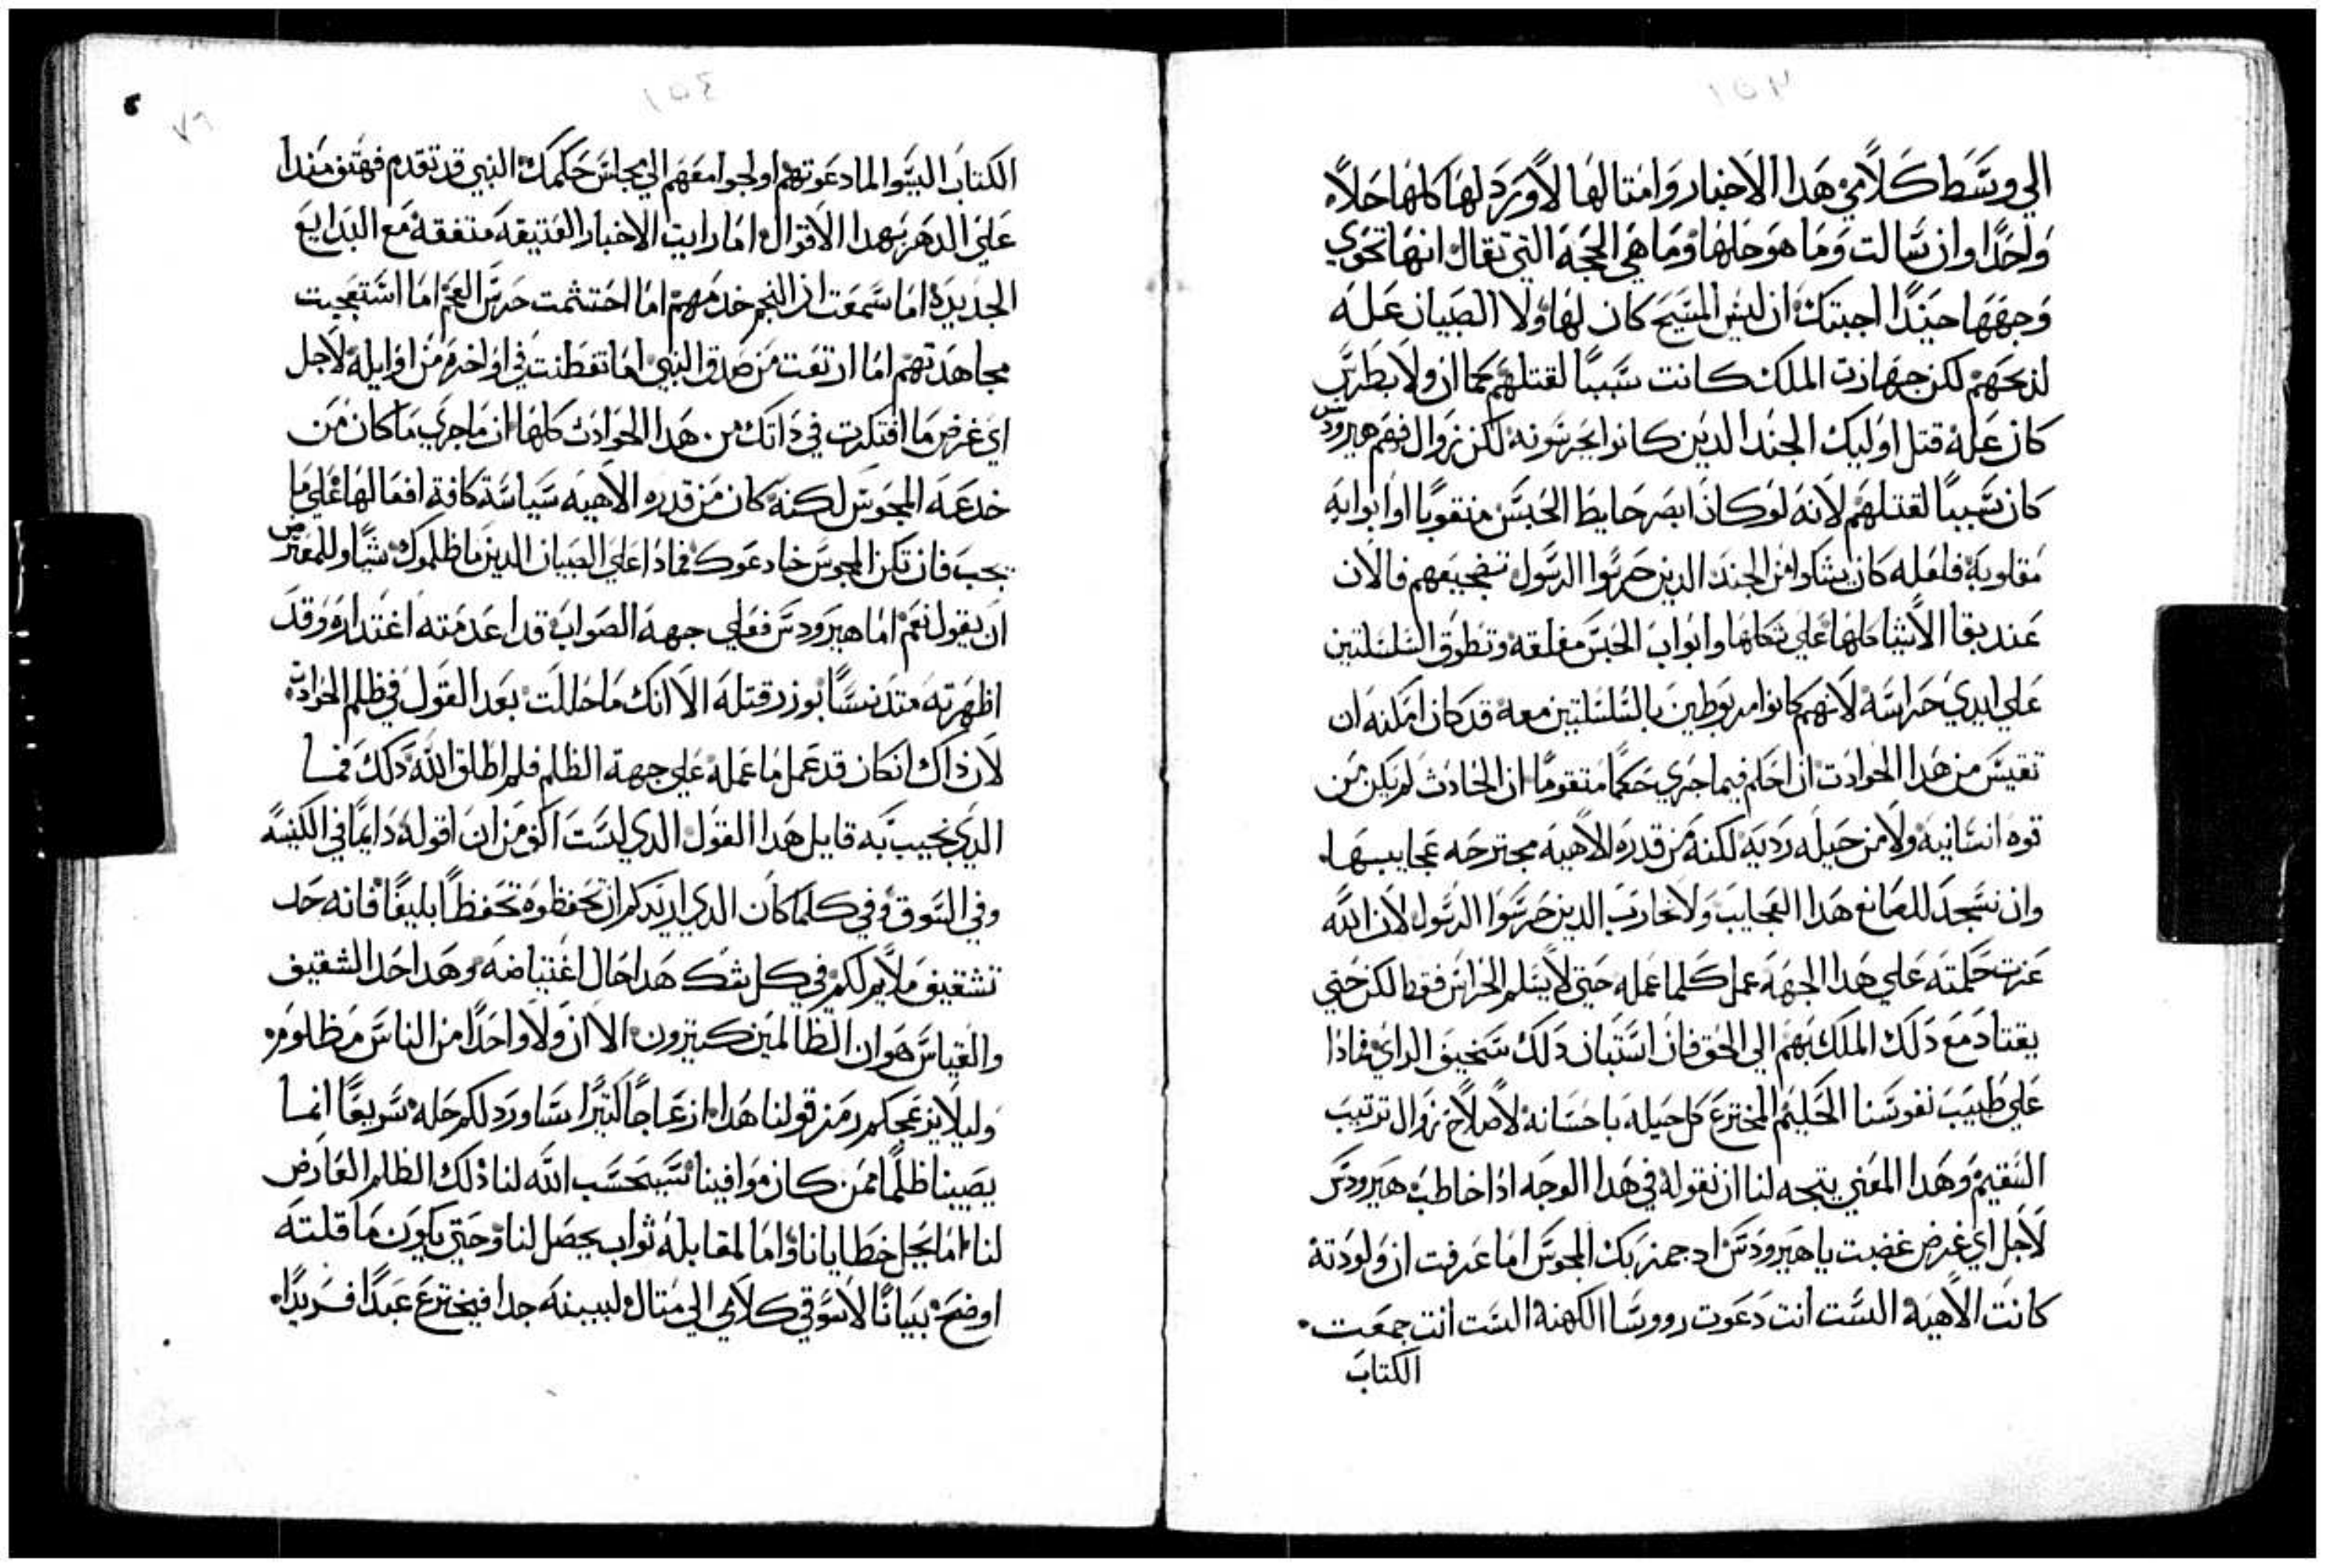 ١٥٣
الي وسَط كلامي هدا الاخبار وامتالها لاورد لها كلها حلاً
واحدًا وان سالت وما هو حلها وما هي الحجه التي تقال انها تحوي
وجهها حيندًا اجبتك ان ليس المسَيح كان لها ولا الصبيان علـه
لدبحهم لكن جهازت الملك كانت سَببًا لقتلهم كما ان ولا بطرس
كان عله قتل اوليك الجند الدين كانوا يحرسونه لكن زوال فهم هيرودس
كان سَببًا لقتلهم لانه لو كان ابصر حايط الحبس منقوبًا او ابوابه
مقلوبة فلعله كان يشكوا من الجند الدين حرسوا الرسول تضجيعهم فالان
عند بقا الاشيا كلها علي شكلها وابواب الحبس مغلقه وتطوق السلسلتين
علي ايدي حراسه لانهم كانوا مربوطين بالسلسلتين معه قد كان امكنه ان
تقيس من هدا الحوادت ان احكم فيما جري حكمًا متقومًا ان الحادث لم يكن من
قوه انسانيه ولا من حيله رديه لكنه من قدره الاهيه مجترحه عجايبها
وان تسَجد للصانع هدا العجايب ولا تحارب الدين حرسوا الرسول لان الله
عزت حكمته علي هدا الجهه عمل كلما عمله حتي لا يسَلم الحراس فقط لكن حتي
يقتاد مع دلك الملك بهم الي الحق فان اسَتبان دلك سَخيق الراي فمادا
علي طبيب نفوسنا الحكيم المخترع كل حيله باحسانه لاصلاح زوال ترتيب
السقيم وهدا المعني يتجه لنا ان نقوله في هدا الوجه ادا خاطب هيرودس
لاجل اي غرض غضبت يا هيرودس اد جمزبك المجوس اما عرفت ان ولودته
كانت الاهية السَت انت دعوت رووسَا الكهنة السَت انت جمعت
الكتاب
١٥٤
٧٦
الكتاب اليسوا لما دعوتهم اولجوا معهم الي مجلس حكمك النبي قد تقدم فهتف مندا
علي الدهر بهدا الاقوال اما رايت الاخبار العتيقه متفقة مع البدايع
الجديدة اما سمعت ان النجم خدمهم اما احتشمت حرس العجم اما استعجبت
مجاهدتهم اما ارتعت من صدق النبي اما تفطنت في اواخره من اوايله لاجل
اي غرض ما افتكرت في داتك من هدا الحوادت كلها ان ما جري ما كان من
خدعة المجوس لكنه كان من قدره الاهيه سَياسَة كافة افعالها علي ما
يجب فان تكن المجوس خادعوك فمادا علي الصبيان الدين ما ظلموك شيًا وللمعترض
ان يقول نعم اما هيرودس فعلي جهة الصواب قد اعدمته اعتداره وقد
اظهرته متدنسًا بوزر قتله الا انك ما حللت بعد القول في ظلم الحوادت
لان داك ان كان قد عمل ما عمله علي جهة الظلم فلم اطلق الله دلك فما
الدي نجيب به قايل هدا القول الدي لسَت اكف من ان اقوله دايمًا في الكنيسَه
وفي السوق وفي كلما كان الدي اريدكم ان تحفظوه تحفظًا بليغًا فانه حد
تشقيف ملايم لكم في كل شك هدا حال اغتياضه وهدا حد الشقيف
والقياس هو ان الظالمين كتيرون الا ان ولا واحدًا من الناس مظلوم
وليلا يزعجكم رمز قولنا هدا ازعاجًا كتيرًا سَاورد لكم حله سَريعًا انما
يصيبنا ظلمًا ممن كان موافينا سَيحسَب الله لنا دلك الظلم العارض
لنا اما يحيل خطايانا واما لمقابلة ثواب يحصل لنا وحتي يكون ما قلته
اوضح بيانًا لاسَوق كلامي الي متال ليبينه جدا فيخترع عبدًا فريدًا